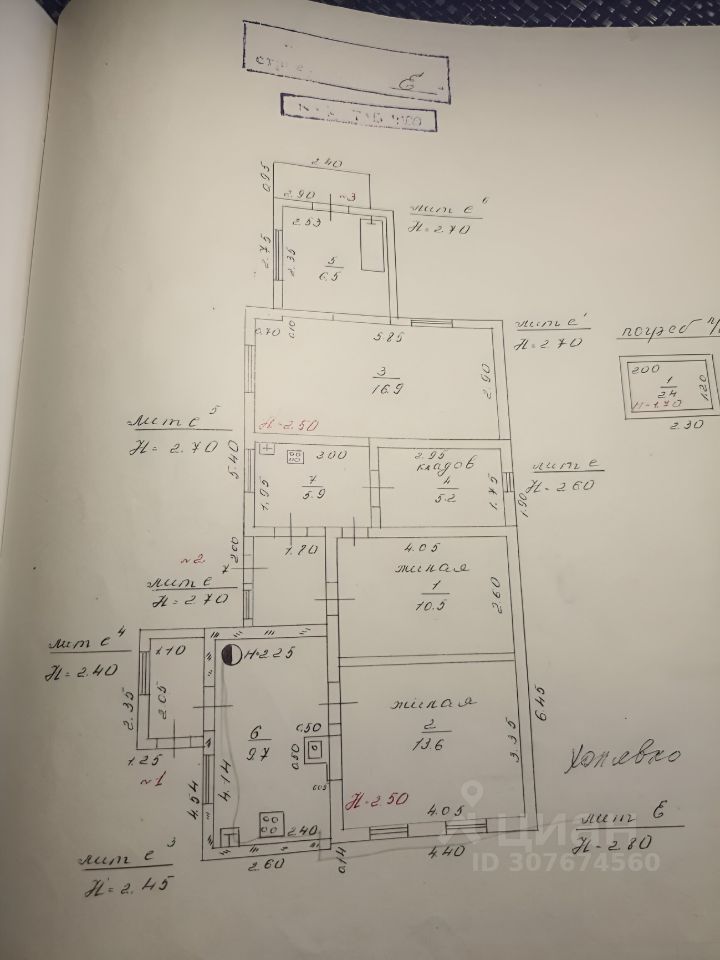 Е
2.40
0.95
2.90
№3
2.53
лит е⁶
H=2.70
2.75
2.35
5
6.5
0.70
0.10
5.85
лит е'
H=2.70
погреб
3
16.9
2.90
200
1
2.4
1.20
H=1.70
2.30
H=2.50
лит е⁵
H=2.70
5.40
3.00
2.95
кладов
лит е
H=2.60
1.95
7
5.9
4
5.2
1.75
1.90
№2
2.00
1.80
4.05
жилая
1
10.5
2.60
лит е
H=2.70
лит е⁴
H=2.40
1.10
H=2.25
2.35
2.05
жилая
2
13.6
6.45
3.35
6
9.7
0.50
0.50
1.25
№1
4.54
4.14
0.05
H=2.50
4.05
Хоплвко
2.40
лит Е
H=2.80
лит е³
H=2.45
2.60
0.14
4.40
циан
ID 307674560